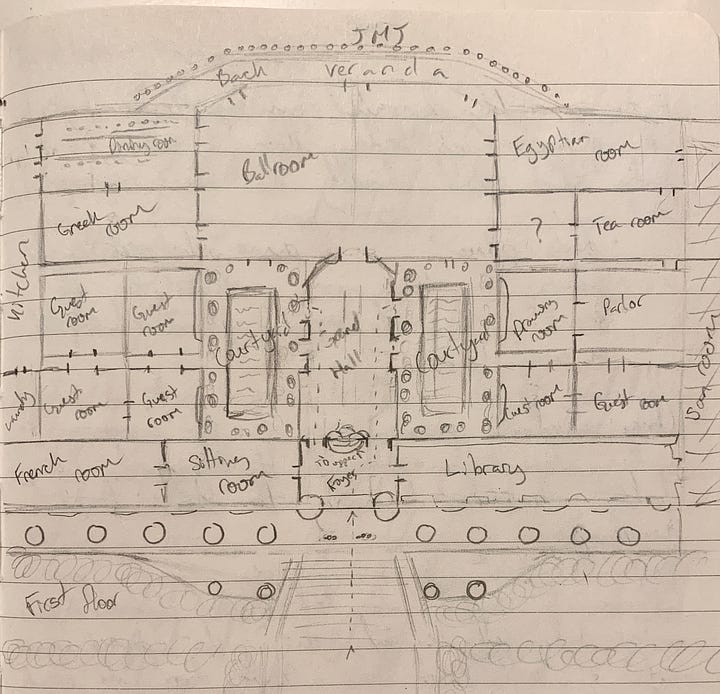 JMJ
Back veranda
Dining room
Ballroom
Egyptian room
Greek room
?
Tea room
Kitchen
Guest room
Guest room
Courtyard
Grand Hall
Courtyard
Drawing room
Parlor
Sun room
Guest room
Guest room
Guest room
Guest room
French room
Sitting room
Foyer
Library
First floor